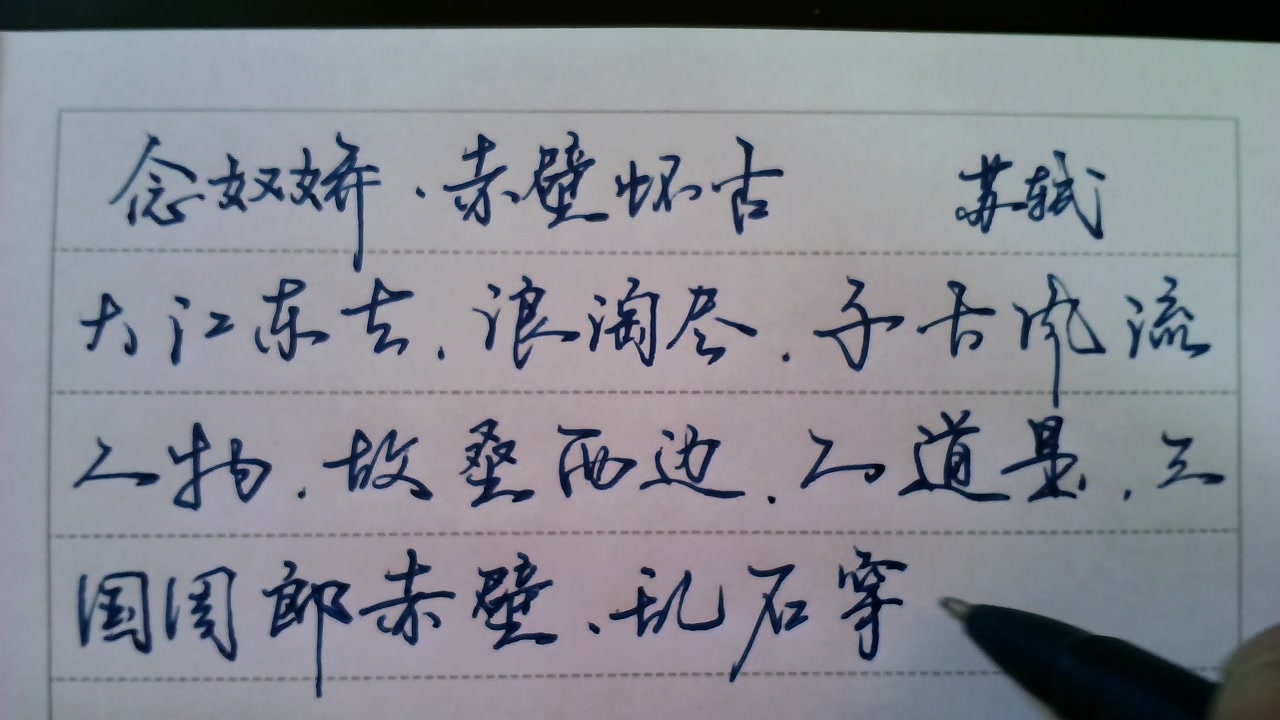 念奴娇·赤壁怀古 苏轼
大江东去，浪淘尽，千古风流
人物，故垒西边，人道是，三
国周郎赤壁，乱石穿